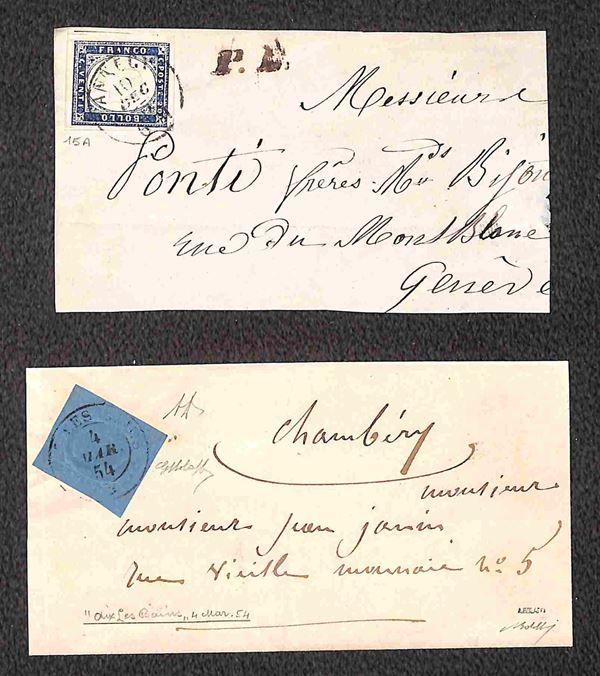 FRANCO
C. POSTE
C. VENTI
BOLLO
ANNECY
10
DEC
P. D.
15A
Messieurs
Ponti frères Mds Bijou
rue du Mont Blanc
Genève
LES BAINS
4
MAR
54
Chambéry
monsieur
monsieur jean janin
rue Vieille monnaie no 5
"Aix Les Bains,, 4 Mar. 54